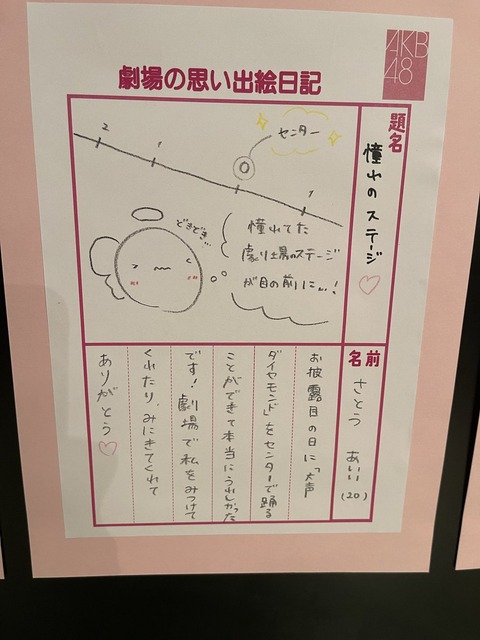 AKB
48
劇場の思い出絵日記
題名
憧れのステージ♡
2
1
0
1
センター
どきどき…
憧れてた
劇場のステージ
が目の前に…!
名前
さとう あいり
(20)
お披露目の日に「大声
ダイヤモンド」をセンターで踊る
ことができて本当にうれしかった
です!劇場で私をみつけて
くれたり、みにきてくれて
ありがとう♡